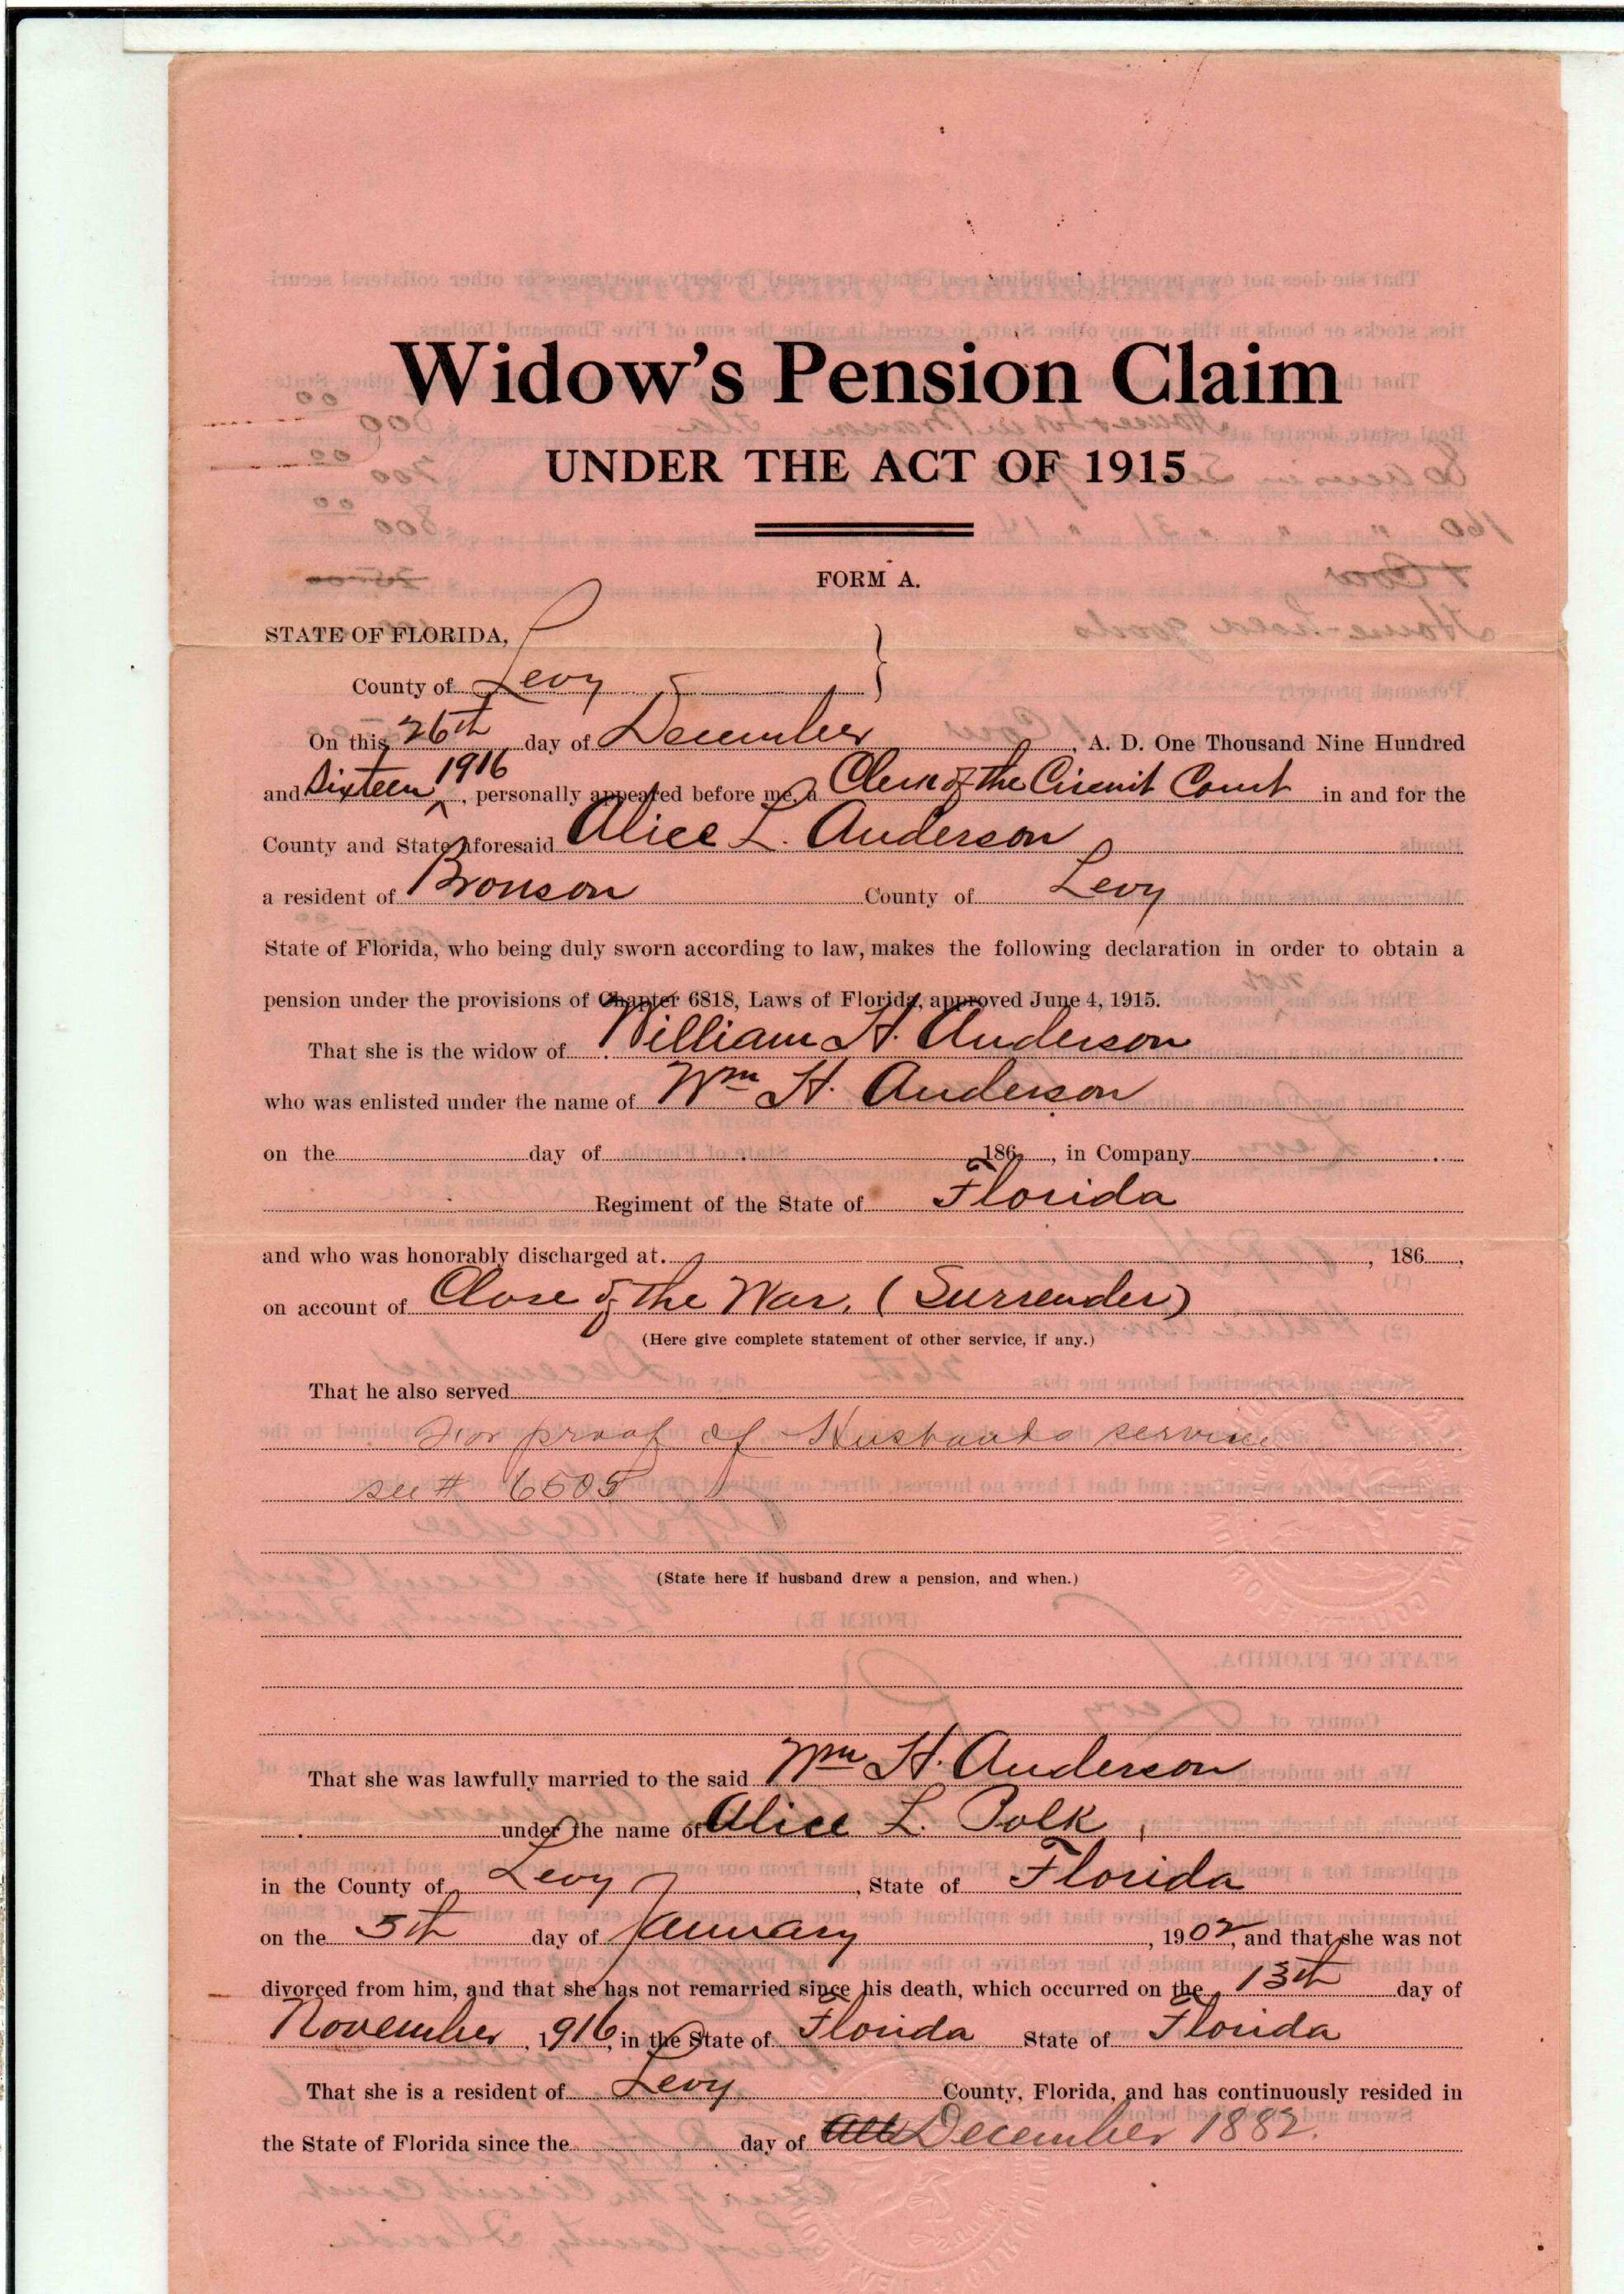 Widow's Pension Claim
UNDER THE ACT OF 1915
FORM A.
STATE OF FLORIDA,
County of Levy
On this 26th day of December, A. D. One Thousand Nine Hundred
and Sixteen 1916, personally appeared before me, a Clerk of the Circuit Court in and for the
County and State aforesaid Alice L. Anderson
a resident of Bronson County of Levy
State of Florida, who being duly sworn according to law, makes the following declaration in order to obtain a
pension under the provisions of Chapter 6818, Laws of Florida, approved June 4, 1915.
That she is the widow of William H. Anderson
who was enlisted under the name of Wm H. Anderson
on the day of 186, in Company
Regiment of the State of Florida
and who was honorably discharged at , 186 ,
on account of Close of the War. (Surrender)
(Here give complete statement of other service, if any.)
That he also served
For proof of Husbands service
see # 6605
(State here if husband drew a pension, and when.)
That she was lawfully married to the said Wm H. Anderson
under the name of Alice L. Polk,
in the County of Levy, State of Florida
on the 5th day of January, 1902, and that she was not
divorced from him, and that she has not remarried since his death, which occurred on the 13th day of
November, 1916, in the State of Florida State of Florida
That she is a resident of Levy County, Florida, and has continuously resided in
the State of Florida since the day of December 1882.